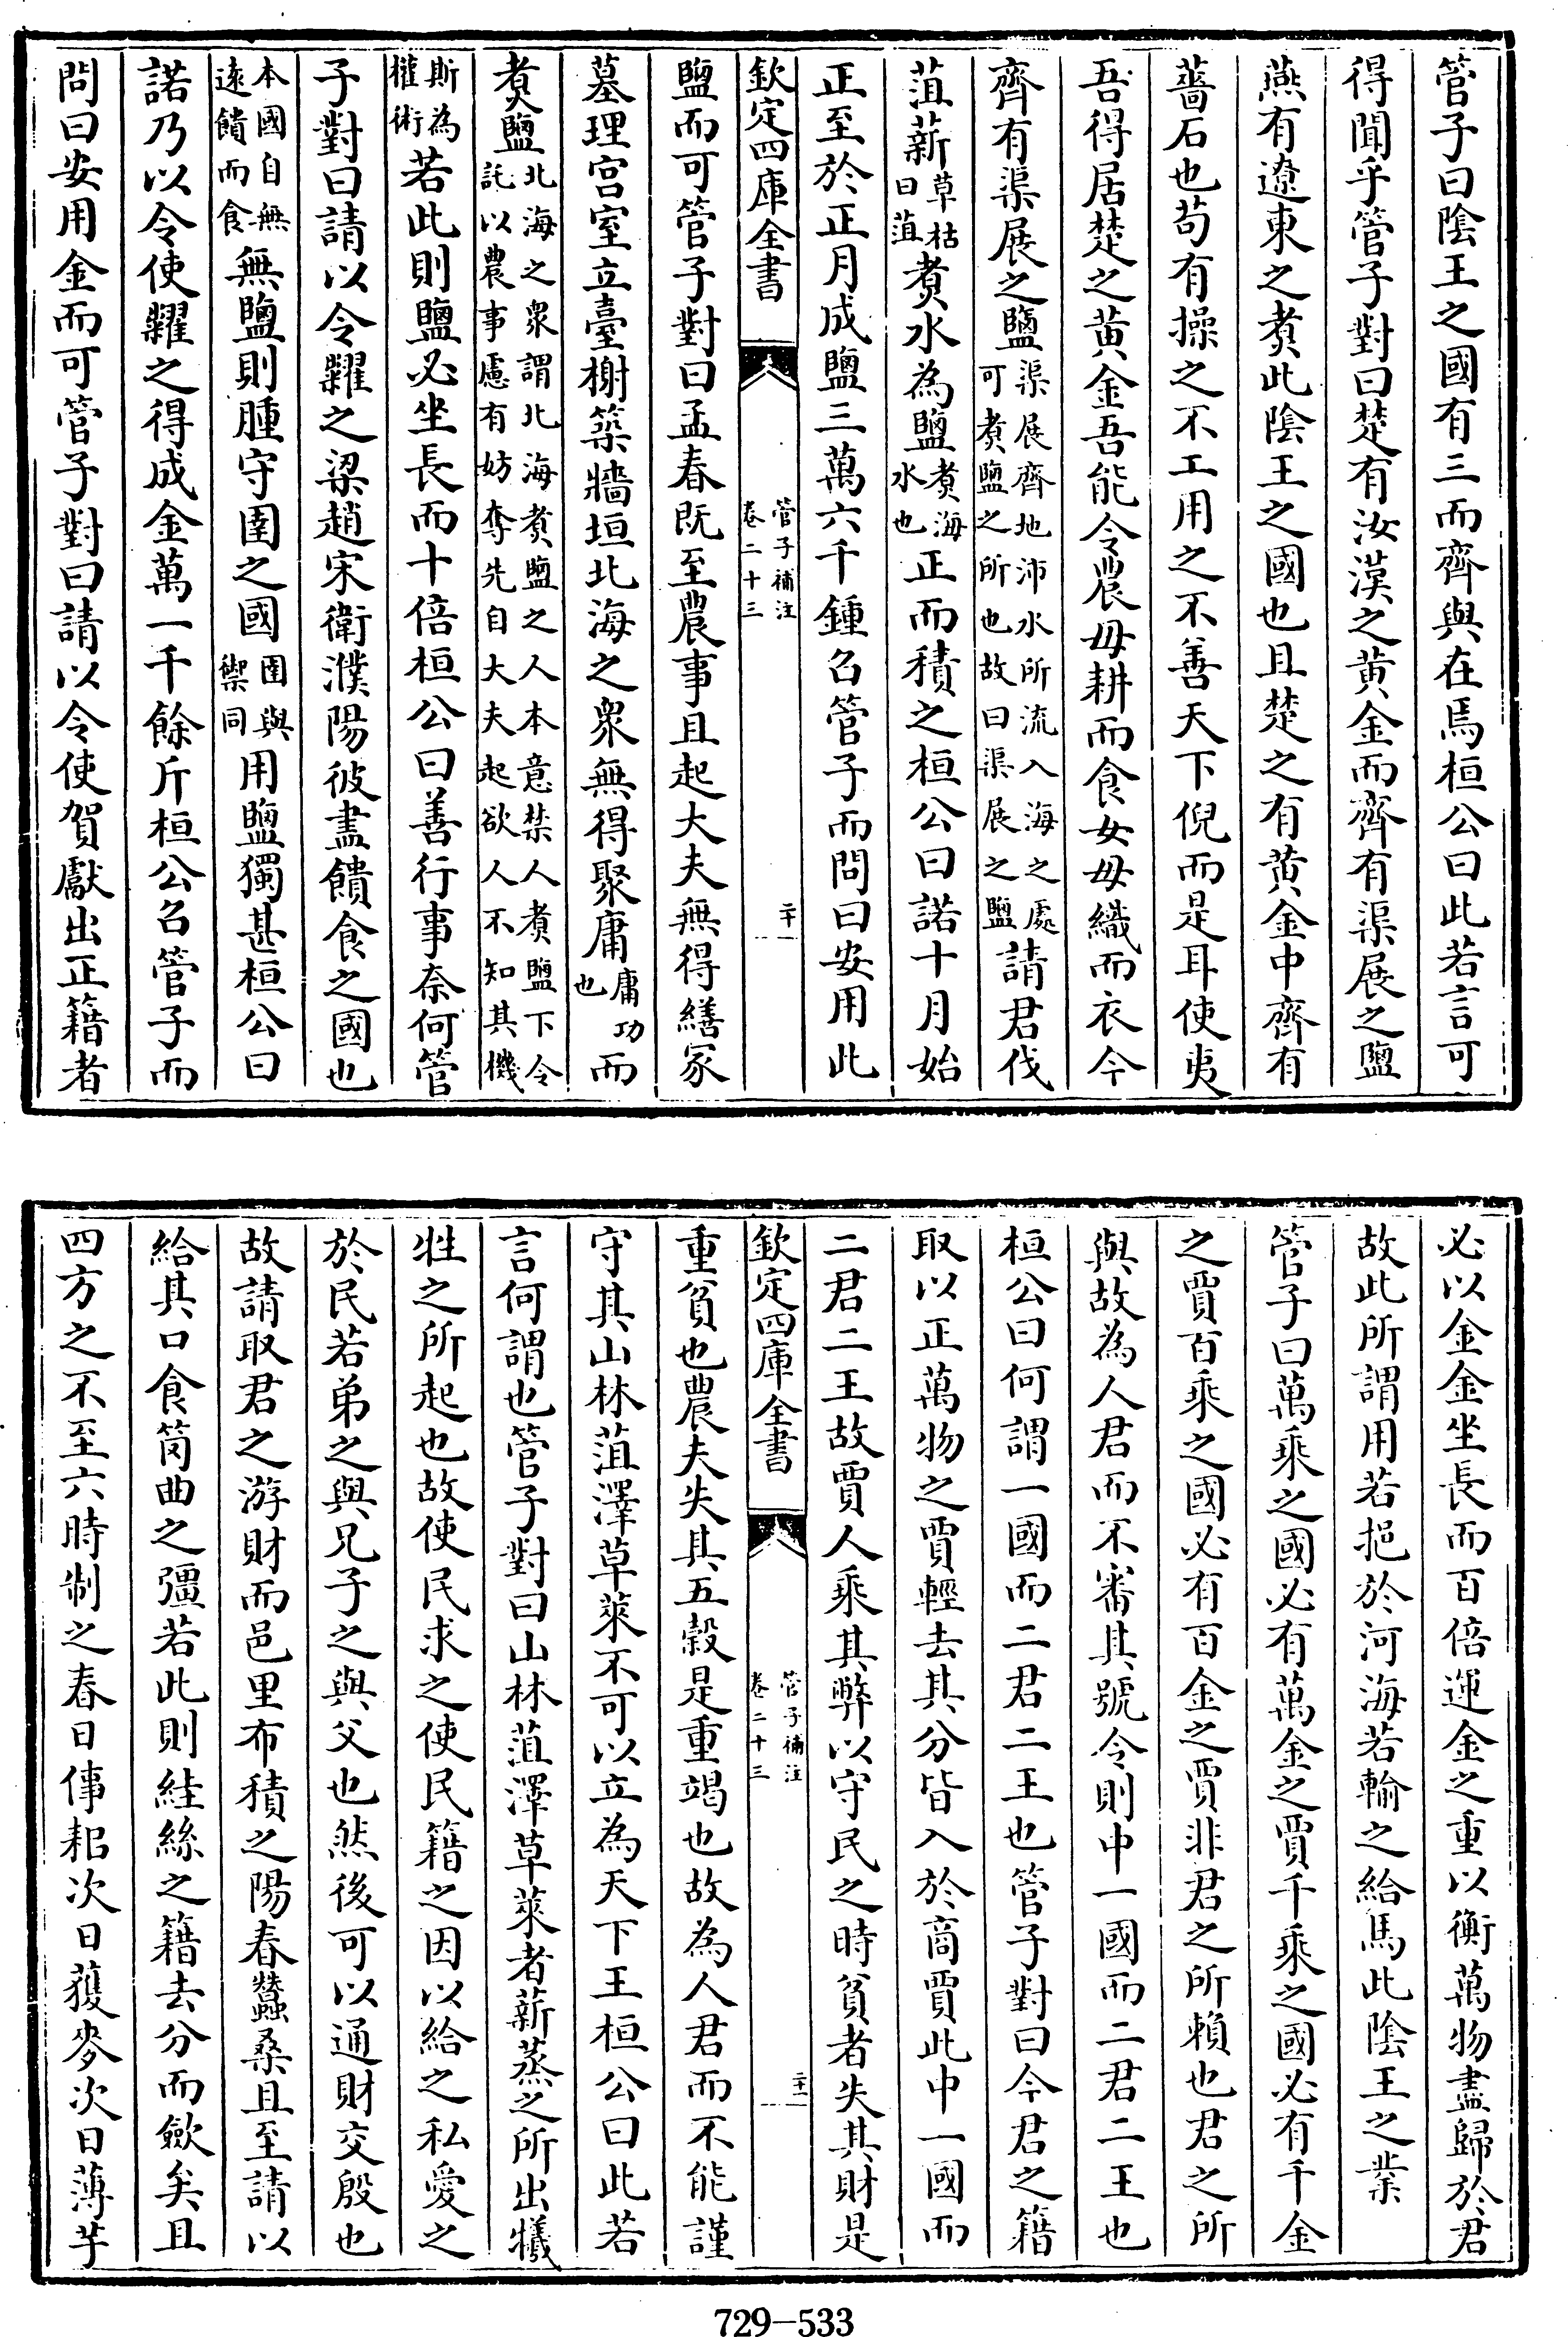 管子曰陰王之國有三而齊與在焉桓公曰此若言可
得聞乎管子對曰楚有汝漢之黄金而齊有渠展之鹽
燕有遼東之煑此陰王之國也且楚之有黄金中齊有
菑石也苟有操之不工用之不善天下倪而是耳使夷
吾得居楚之黄金吾能令農毋耕而食女毋織而衣今
齊有渠展之鹽渠展齊地沛水所流入海之處可煑鹽之所也故曰渠展之鹽請君伐
菹薪草枯曰菹煑水為鹽煑海水也正而積之桓公曰諾十月始
正至於正月成鹽三萬六千鍾召管子而問曰安用此
欽定四庫全書 管子補注 卷二十三 二十
鹽而可管子對曰孟春既至農事且起大夫無得繕冡
墓理宫室立臺榭築牆垣北海之衆無得聚庸庸功也而
煑鹽北海之衆謂北海煑鹽之人本意禁人煑鹽下令託以農事慮有妨奪先自大夫起欲人不知其機
斯為權術若此則鹽必坐長而十倍桓公曰善行事奈何管
子對曰請以令糶之梁趙宋衛濮陽彼盡饋食之國也
本國自無逺饋而食無鹽則腫守圉之國圉與禦同用鹽獨甚桓公曰
諾乃以令使糶之得成金萬一千餘斤桓公召管子而
問曰安用金而可管子對曰請以令使賀獻出正籍者
必以金金坐長而百倍運金之重以衡萬物盡歸於君
故此所謂用若挹於河海若輸之給馬此陰王之業
管子曰萬乘之國必有萬金之賈千乘之國必有千金
之賈百乘之國必有百金之賈非君之所賴也君之所
與故為人君而不審其號令則中一國而二君二王也
桓公曰何謂一國而二君二王也管子對曰今君之籍
取以正萬物之賈輕去其分皆入於商賈此中一國而
二君二王故賈人乘其弊以守民之時貧者失其財是
欽定四庫全書 管子補注 卷二十三 二十一
重貧也農夫失其五穀是重竭也故為人君而不能謹
守其山林菹澤草萊不可以立為天下王桓公曰此若
言何謂也管子對曰山林菹澤草萊者薪蒸之所出犧
牲之所起也故使民求之使民籍之因以給之私愛之
於民若弟之與兄子之與父也然後可以通財交殷也
故請取君之游財而邑里布積之陽春蠶桑且至請以
給其口食筒曲之彊若此則絓絲之籍去分而歛矣且
四方之不至六時制之春日倳耜次日穫麥次日薄芋
729-533